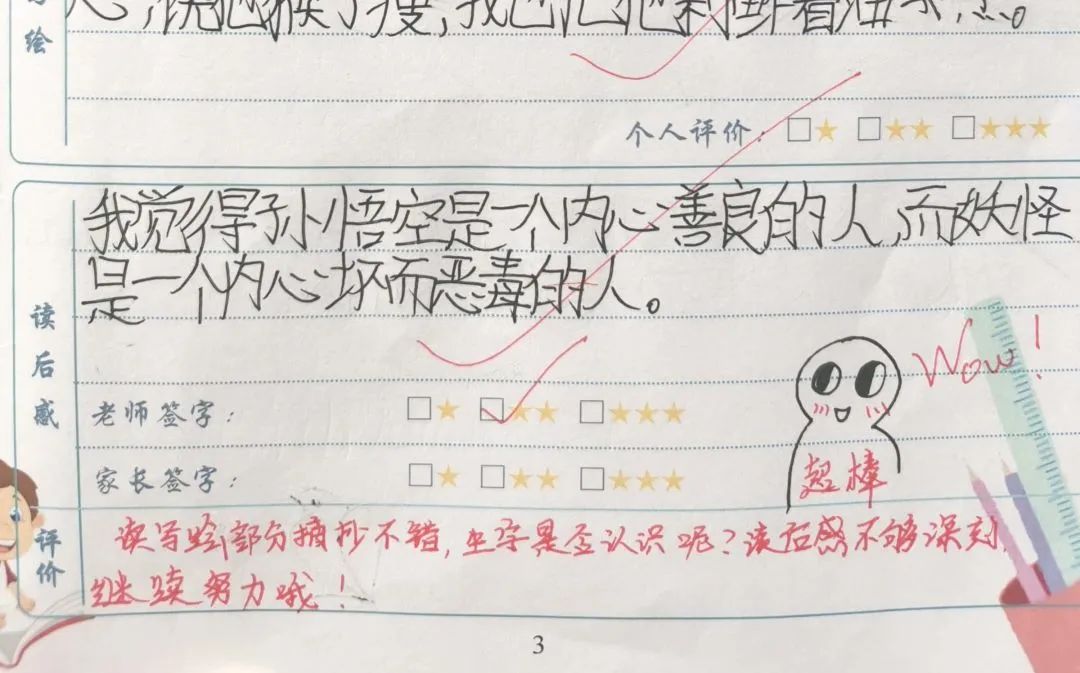 绘
个人评价：
我觉得孙悟空是一个内心善良的人,而妖怪
是一个内心坏而恶毒的人。
读后感
Wow!
老师签字：
家长签字：
超棒
评价
读写绘部分摘抄不错,生字是否认识呢?读后感不够深刻,
继续努力哦!
3